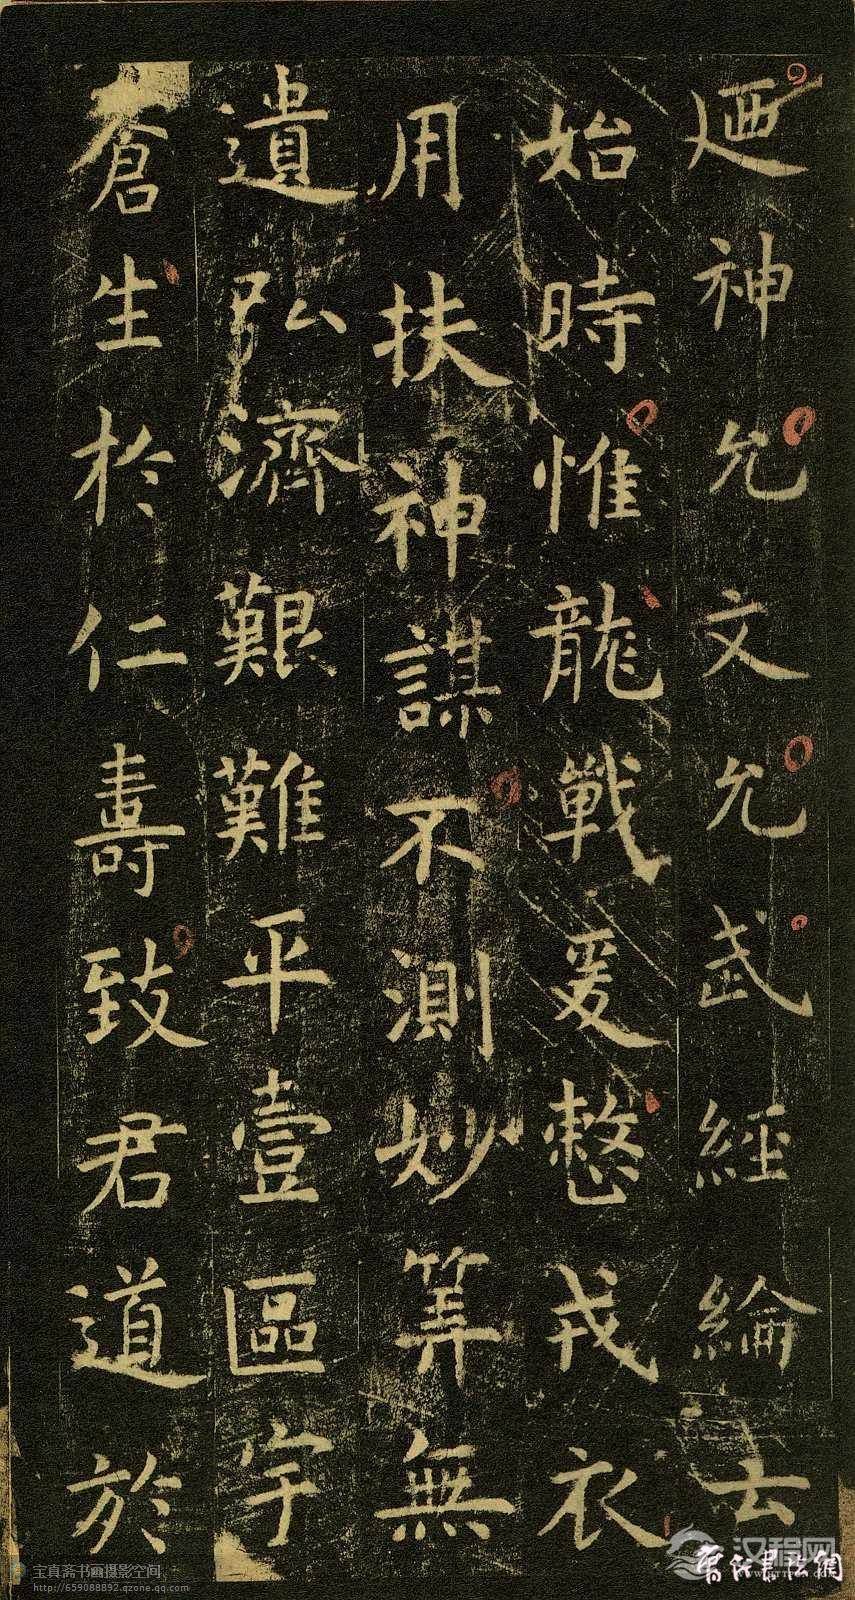 廼神允文允武經綸云
始時惟龍戰爰整戎衣
用扶神謀不測妙筭無
遺弘濟艱難平壹區宇
蒼生於仁壽致君道於
宝真斋书画摄影空间
http://659088892.qzone.qq.com
汉程网